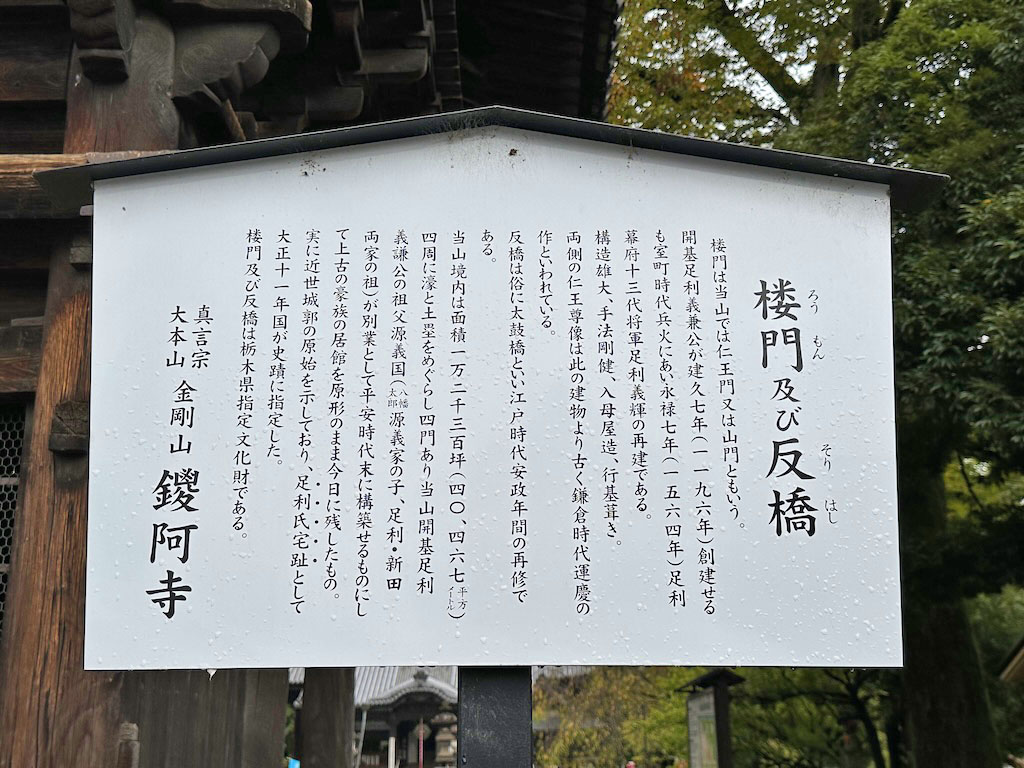 楼門及び反橋
ろうもん
そりはし
楼門は当山では仁王門又は山門ともいう。
開基足利義兼公が建久七年(一一九六年)創建せる
も室町時代兵火にあい永禄七年(一五六四年)足利
幕府十三代将軍足利義輝の再建である。
構造雄大、手法剛健、入母屋造、行基葺き。
両側の仁王尊像は此の建物より古く鎌倉時代運慶の
作といわれている。
反橋は俗に太鼓橋といい江戸時代安政年間の再修で
ある。
当山境内は面積一万二千三百坪(四〇、四六七平方メートル)
四周に濠と土塁をめぐらし四門あり当山開基足利
義謙公の祖父源義国(八幡太郎源義家の子、足利・新田
両家の祖)が別業として平安時代末に構築せるものにし
て上古の豪族の居館を原形のまま今日に残したもの。
実に近世城郭の原始を示しており、足利氏宅趾として
大正十一年国が史蹟に指定した。
楼門及び反橋は栃木県指定文化財である。
真言宗
大本山 金剛山 鑁阿寺